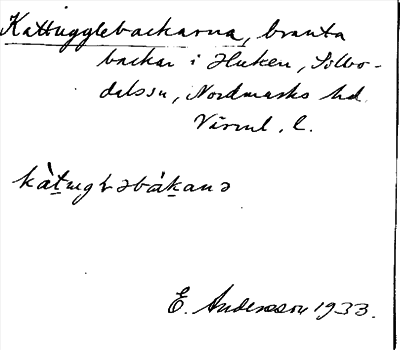 Kattugglebackarna, branta
backar i Huken, Silbo-
dalssn, Nordmarks hd.
Värml. l.
kàtugləbákanə
E. Andersson 1933.